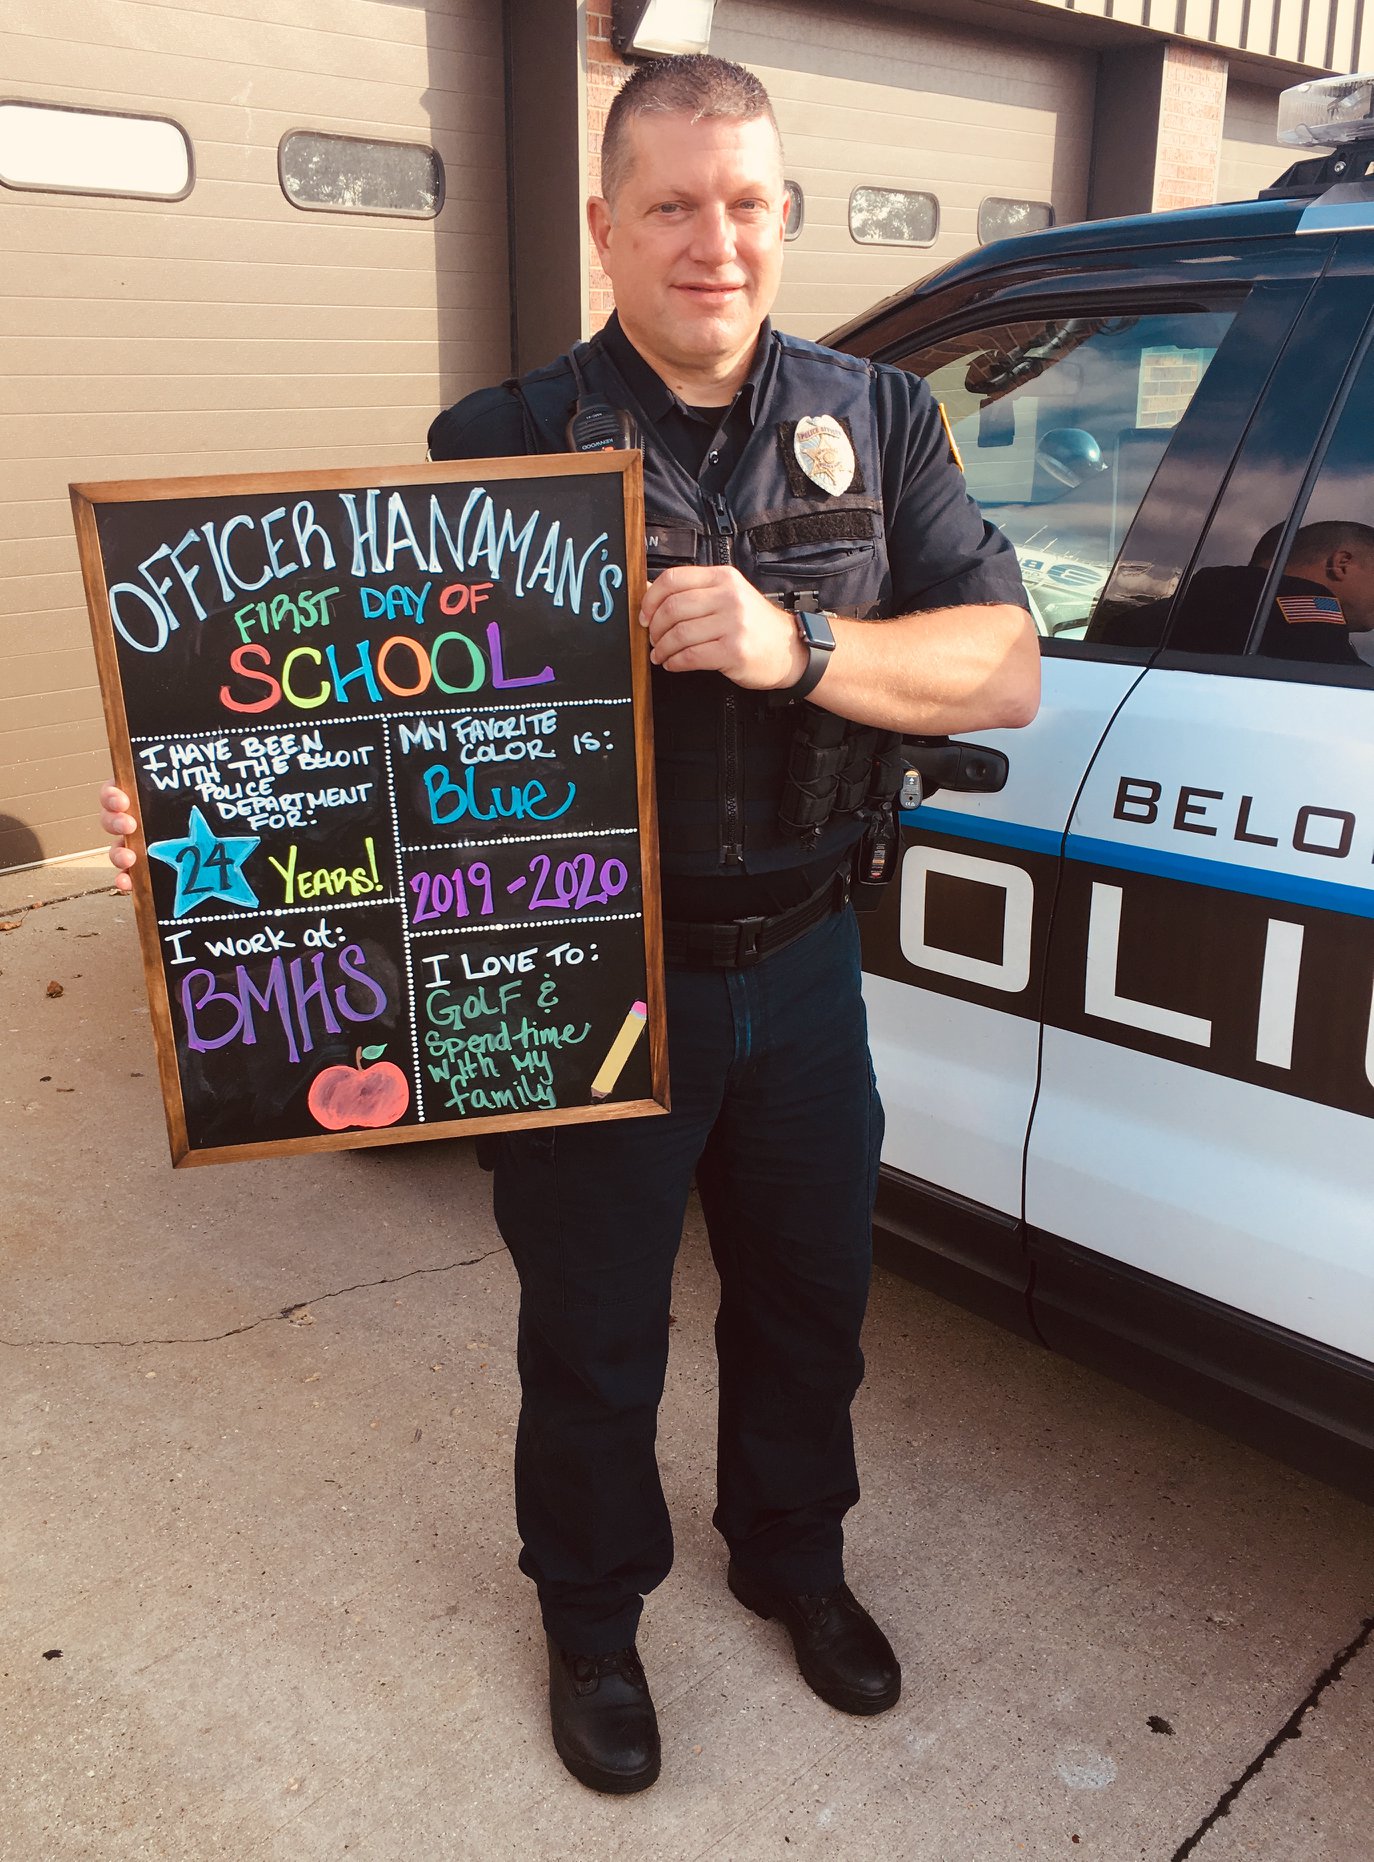 OFFICER HANAMAN'S
FIRST DAY OF
SCHOOL
I HAVE BEEN
WITH THE BELOIT
POLICE
DEPARTMENT
FOR:
24
YEARS!
I WORK at:
BMHS
MY FAVORITE
COLOR IS:
Blue
2019-2020
I LOVE TO:
GOLF &
Spend time
with My
family
KENWOOD
POLICE OFFICER
AN
BELO
OLI